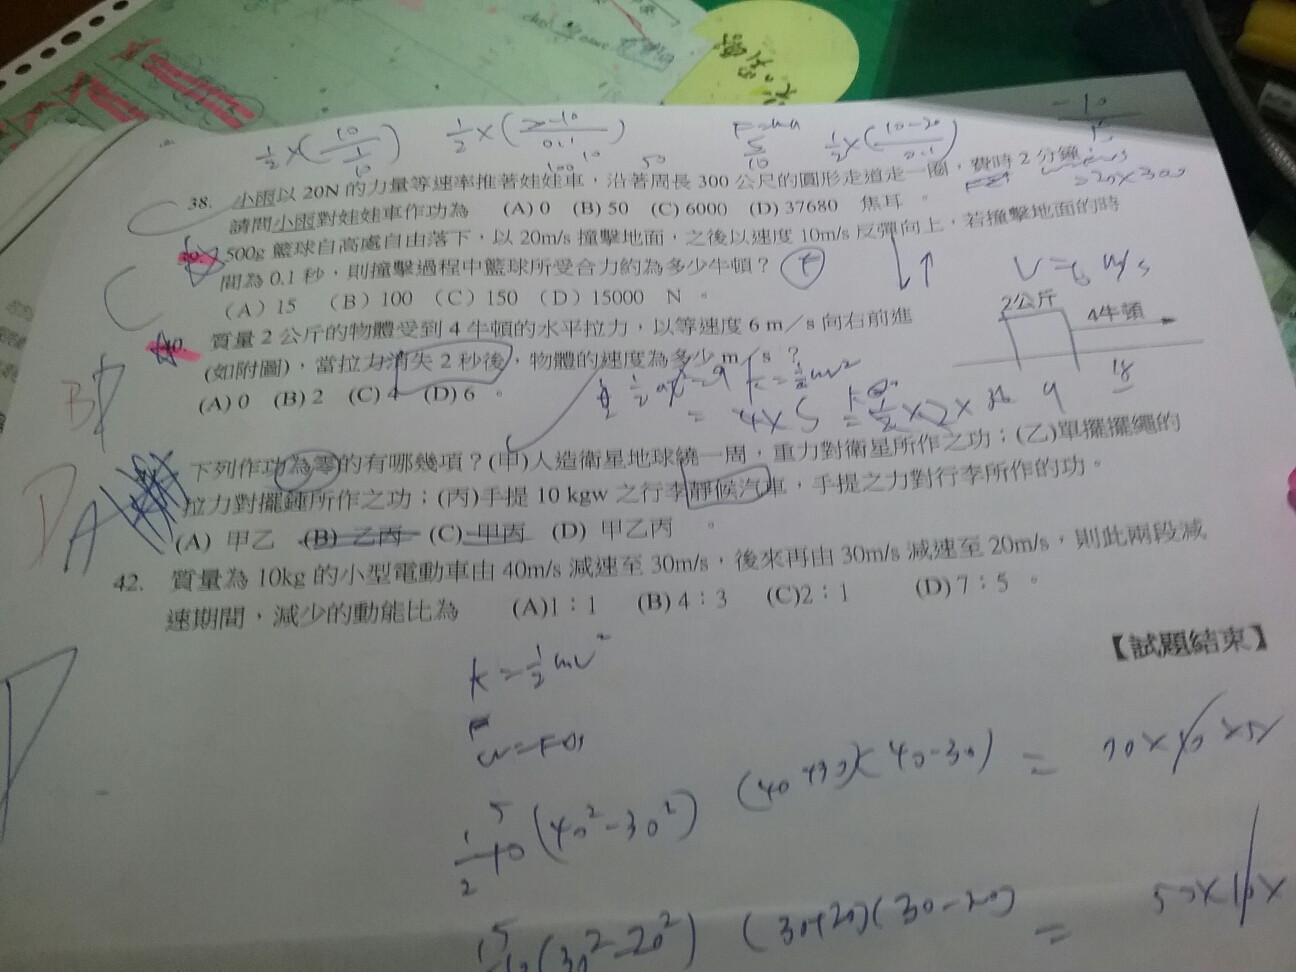 ½×(10/(1/10))
½×(
F=ma
½×(10-20/0.1)
38. 小雨以 20N 的力量等速率推著娃娃車，沿著周長 300 公尺的圓形走道走一圈，費時 2 分鐘
=20×300
請問小雨對娃娃車作功為 (A) 0 (B) 50 (C) 6000 (D) 37680 焦耳。
C
500g 籃球自高處自由落下，以 20m/s 撞擊地面，之後以速度 10m/s 反彈向上，若撞擊地面的時
間為 0.1 秒，則撞擊過程中籃球所受合力約為多少牛頓？
(A) 15 (B) 100 (C) 150 (D) 15000 N 。
C
V=6 m/s
2公斤
4牛頓
40. 質量 2 公斤的物體受到 4 牛頓的水平拉力，以等速度 6 m／s 向右前進
(如附圖)，當拉力消失 2 秒後，物體的速度為多少 m／s ？
(A) 0 (B) 2 (C) 4 (D) 6 。
B
k=½mv²
=4×S
18
下列作功為零的有哪幾項？(甲)人造衛星地球繞一周，重力對衛星所作之功；(乙)單擺擺繩的
拉力對擺錘所作之功；(丙)手提 10 kgw 之行李靜候汽車，手提之力對行李所作的功。
(A) 甲乙 (B) 乙丙 (C) 甲丙 (D) 甲乙丙 。
D
A
42. 質量為 10kg 的小型電動車由 40m/s 減速至 30m/s，後來再由 30m/s 減速至 20m/s，則此兩段減
速期間，減少的動能比為 (A)1：1 (B) 4：3 (C)2：1 (D) 7：5 。
D
【試題結束】
k=½mv²
W=FΔs
½10(40²-30²) (40+30)(40-30) =
(30²-20²) (30+20)(30-20) =